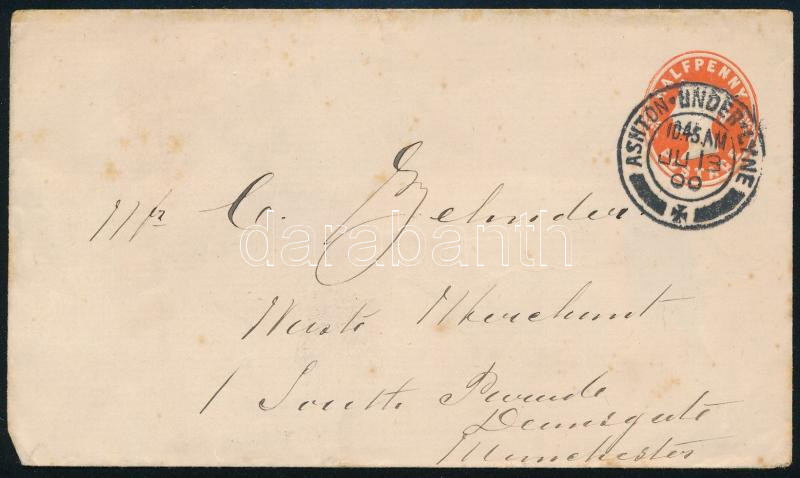 HALFPENNY
ASHTON-UNDER-LYNE
10.45 AM
JU 13
00
Mr C. Zehnder
Waste Merchant
1 South Parade
Deansgate
Manchester
darabanth